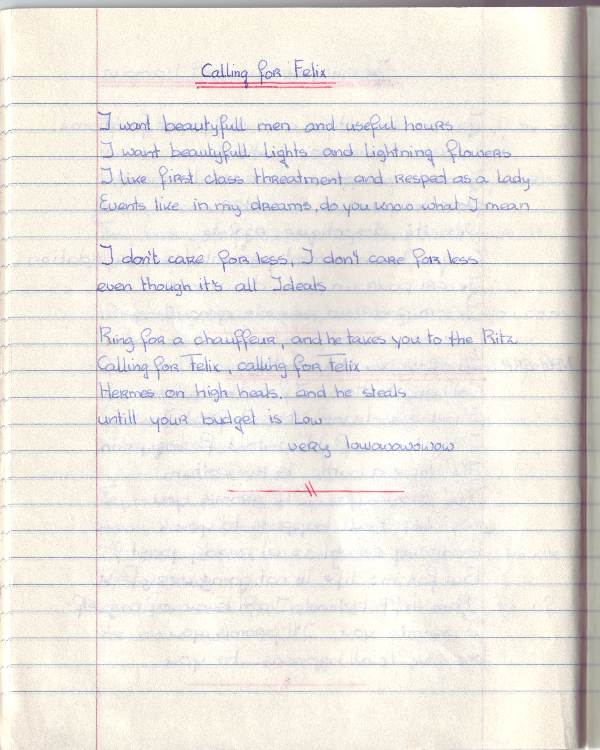 Calling for Felix
I want beautyfull men and useful hours
I want beautyfull lights and lightning flowers
I like first class threatment and respect as a lady
Events like in my dreams, do you know what I mean
I don't care for less, I don't care for less
even though it's all Ideals
Ring for a chauffeur, and he takes you to the Ritz
Calling for Felix, calling for Felix
Hermes on high heals, and he steals
untill your budget is low
very lowowowowow